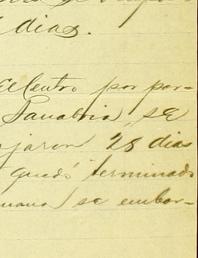 dias.
el Centro por par-
Panabria, se
jaron 28 dias
quedó terminado
se embar-